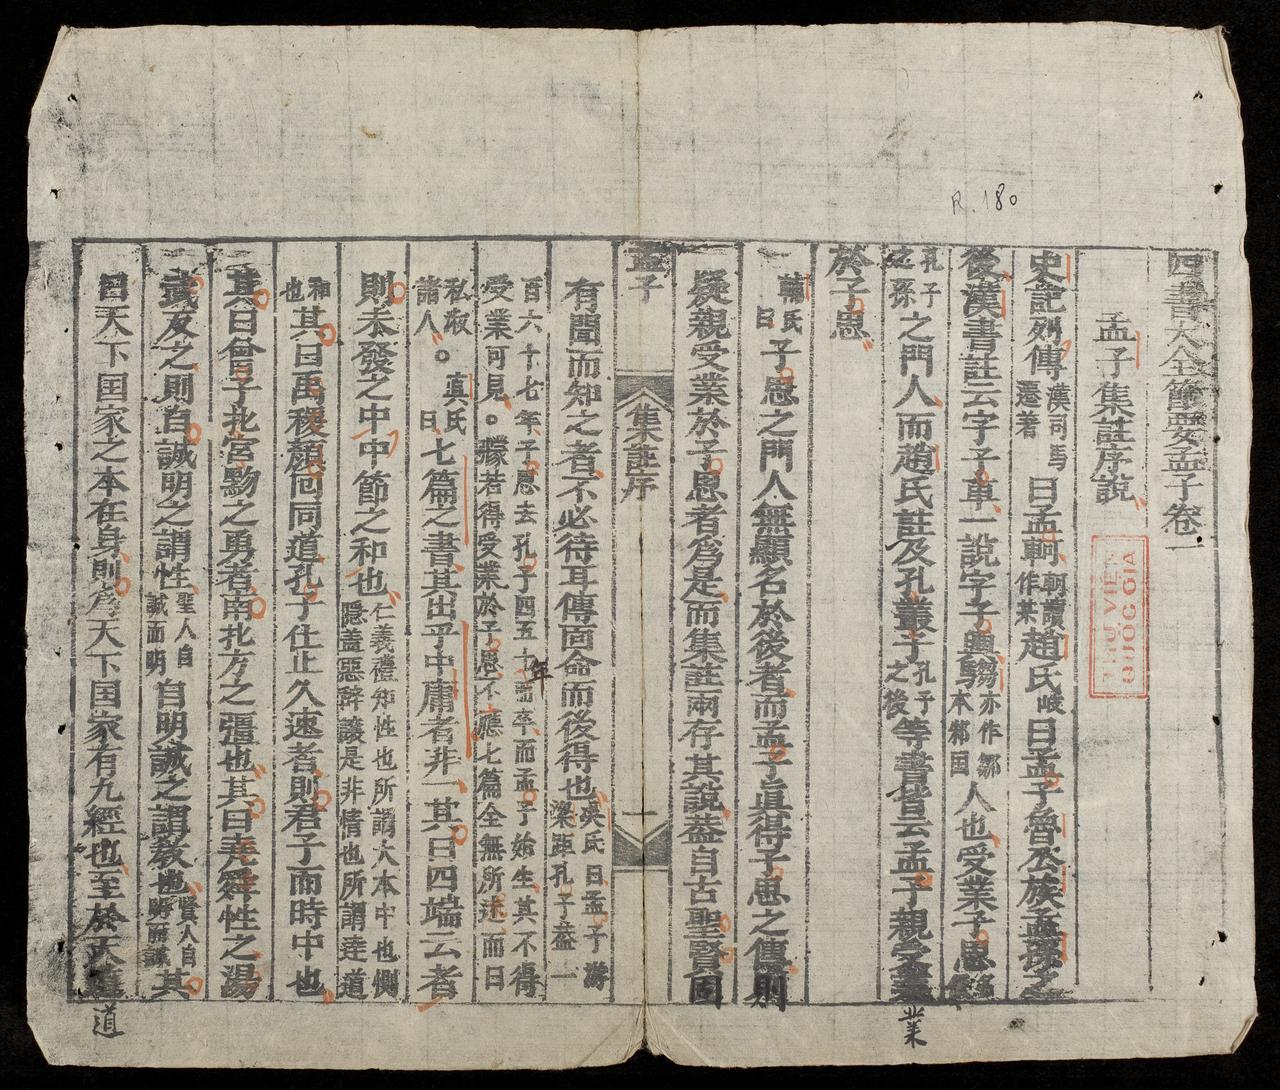 R.180
四書大全節要孟子卷一
孟子集註序說
THƯ VIỆN
QUỐC GIA
史記列傳漢司馬遷著曰孟軻軻讀作某趙氏岐曰孟子魯公族孟孫之
後漢書註云字子車一說字子輿騶騶亦作鄒本邾国人也受業子思
孔子之孫之門人而趙氏註及孔叢子孔子之後等書皆云孟子親受業
業
於子思
輔氏曰子思之門人無顯名於後者而孟子真得子思之傳則
疑親受業於子思者爲是而集註兩存其說蓋自古聖賢固
孟子 集註序 一
有聞而知之者不必待耳傳面命而後得也吳氏曰孟子游梁距孔子蓋一
百六十七年子思去孔子四五十年而卒而孟子始生其不得
受業可見○據若得受業於子思不應七篇全無所述而曰
私淑諸人○真氏曰七篇之書其出乎中庸者非一其曰四端云者
則未發之中中節之和也仁義禮知性也所謂大本中也惻隱羞惡辭讓是非情也所謂達道
和也其曰禹稷顏回同道孔子仕止久速者則君子而時中也
其曰曾子北宮黝之勇者南北方之彊也其曰堯舜性之湯
武反之則自誠明之謂性聖人自誠而明自明誠之謂教也賢人自明而誠其
曰天下国家之本在身則爲天下国家有九經也至於天道
道